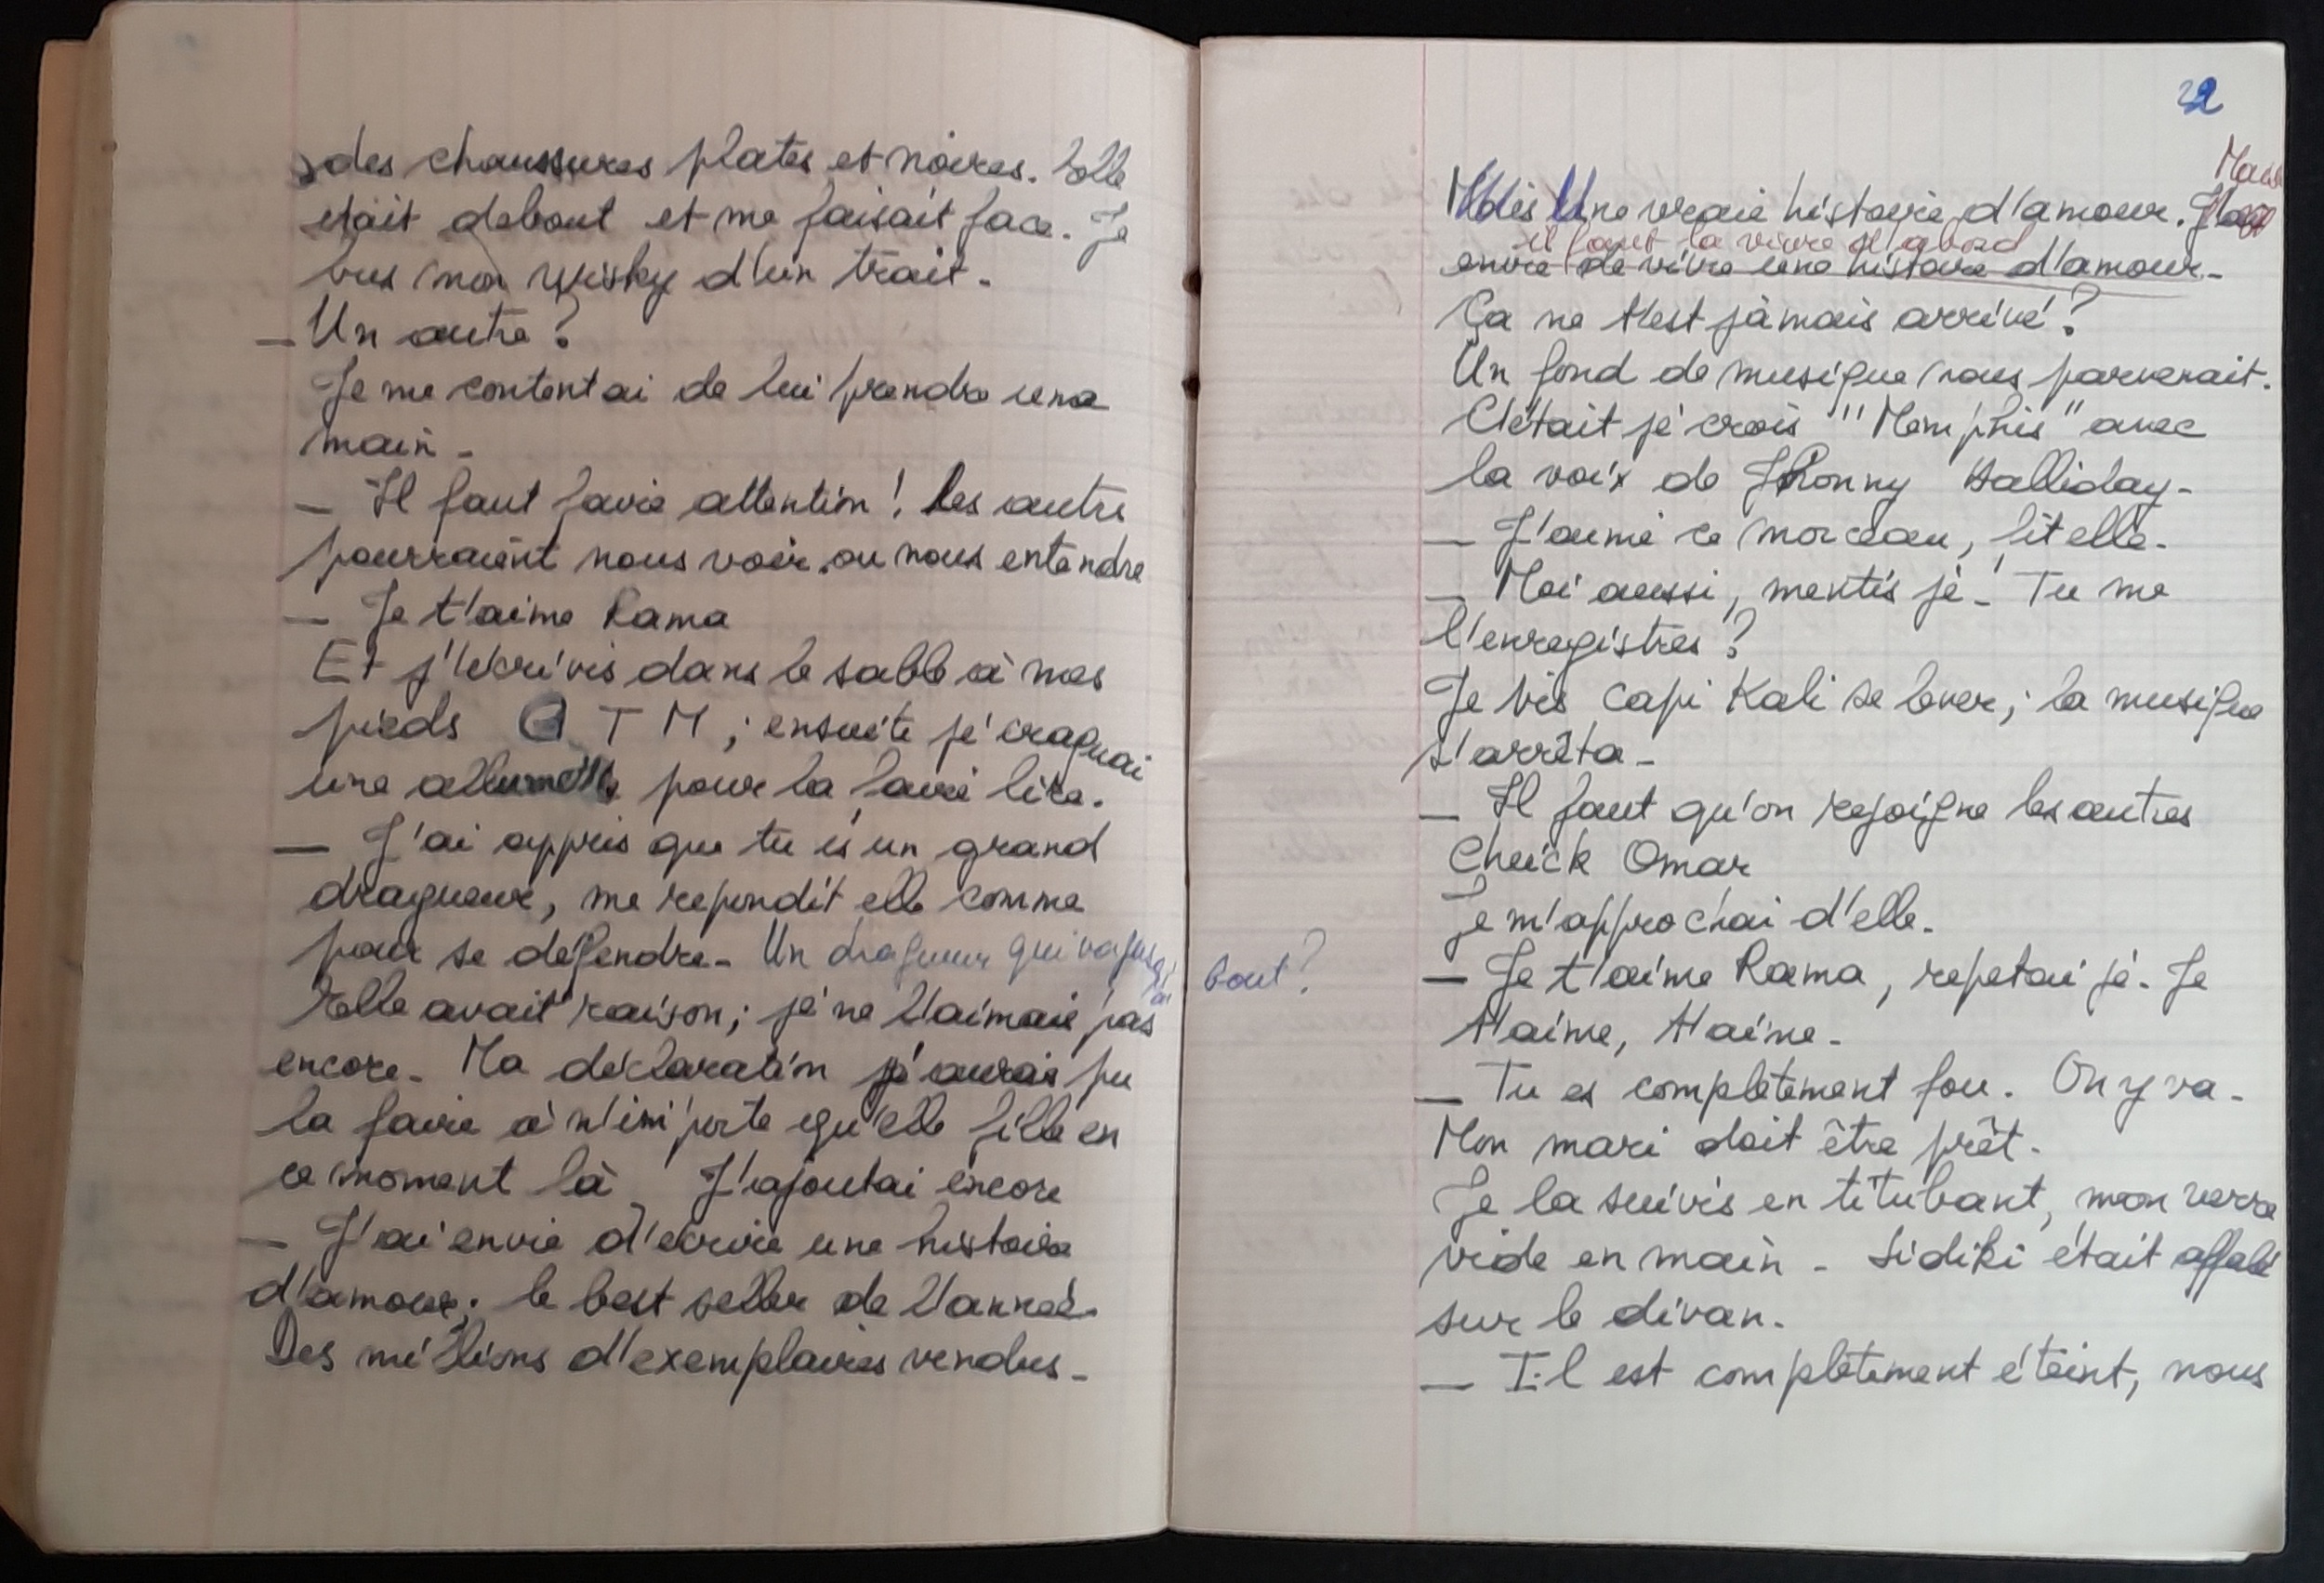 des chaussures plates et noires. Elle
etait debout et me faisait face. Je
bus mon wisky d'un trait.
_ Un autre ?
Je me contentai de lui prendre une
main -
_ Il faut faire attention ! les autre
pourraient nous voir. ou nous entendre
_ Je t'aime Rama
Et j'écrivis dans le sable à mes
pieds T M ; ensuite je craquai
une allumette pour la faire lire.
_ J'ai appris que tu es un grand
dragueur, me repondit elle comme
pour se défendre - Un dragueur qui va jusqu'
au bout ?
Elle avait raison ; je ne l'aimais pas
encore - Ma déclaration j'aurais pu
la faire à n'importe qu'elle fille en
ce moment là. J'ajoutai encore
_ J'ai envie d'ecrire une histoire
d'amour, le best seller de l'année -
Des millions d'exemplaires vendus -
22
Mais
Mais Une vraie histoire d'amour. J'ai
il faut la vivre d'abord
envie de vivre une histoire d'amour -
Ça ne t'est jamais arrivé ?
Un fond de musique nous parvenait.
C'était je crois "Memphis" avec
la voix de Jhonny Halliday -
_ J'aime ce morceau, fit elle -
_ Moi aussi, mentis je - Tu me
l'enregistres ?
Je vis Capi Kali se lever ; la musique
s'arrêta -
_ Il faut qu'on rejoigne les autres
Cheick Omar
Je m'approchai d'elle -
_ Je t'aime Rama, repetai je - Je
t'aime, t'aime -
_ Tu es complètement fou. On y va -
Mon mari doit être prêt -
Je la suivis en titubant, mon verre
vide en main - Sidiki était affalé
sur le divan -
_ Il est complètement éteint, nous